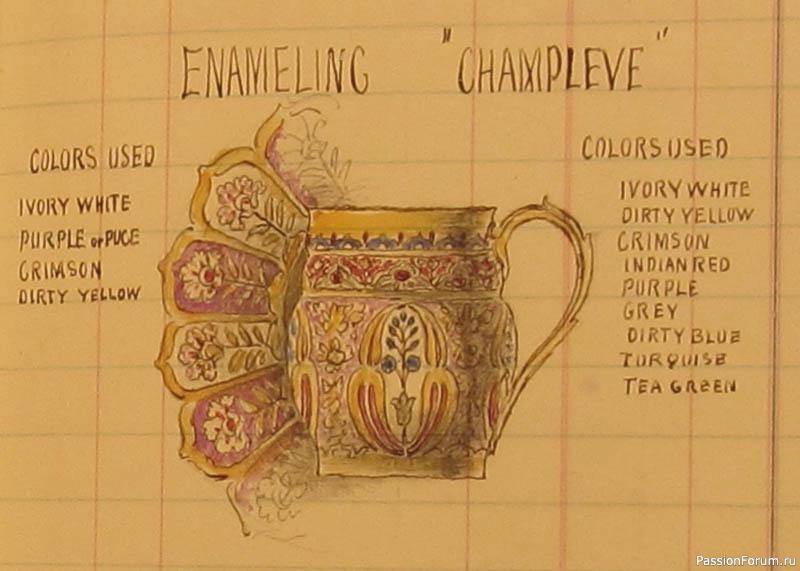 ENAMELING "CHAMPLEVE"
COLORS USED
IVORY WHITE
PURPLE or PUCE
CRIMSON
DIRTY YELLOW
COLORS USED
IVORY WHITE
DIRTY YELLOW
CRIMSON
INDIAN RED
PURPLE
GREY
DIRTY BLUE
TURQUISE
TEA GREEN
PassionForum.ru